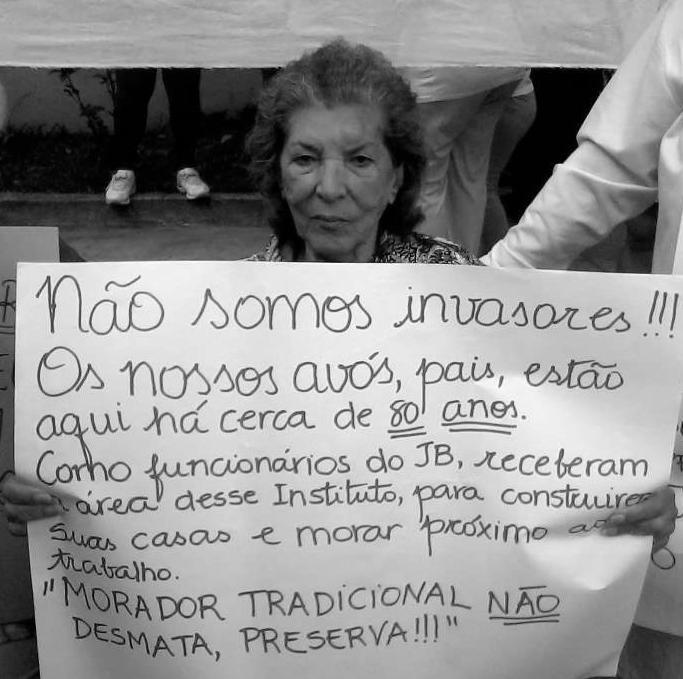 Não somos invasores!!!
Os nossos avós, pais, estão
aqui há cerca de 80 anos.
Como funcionários do JB, receberam
área desse Instituto, para construirem
suas casas e morar próximo ao
trabalho.
"MORADOR TRADICIONAL NÃO
DESMATA, PRESERVA!!!"